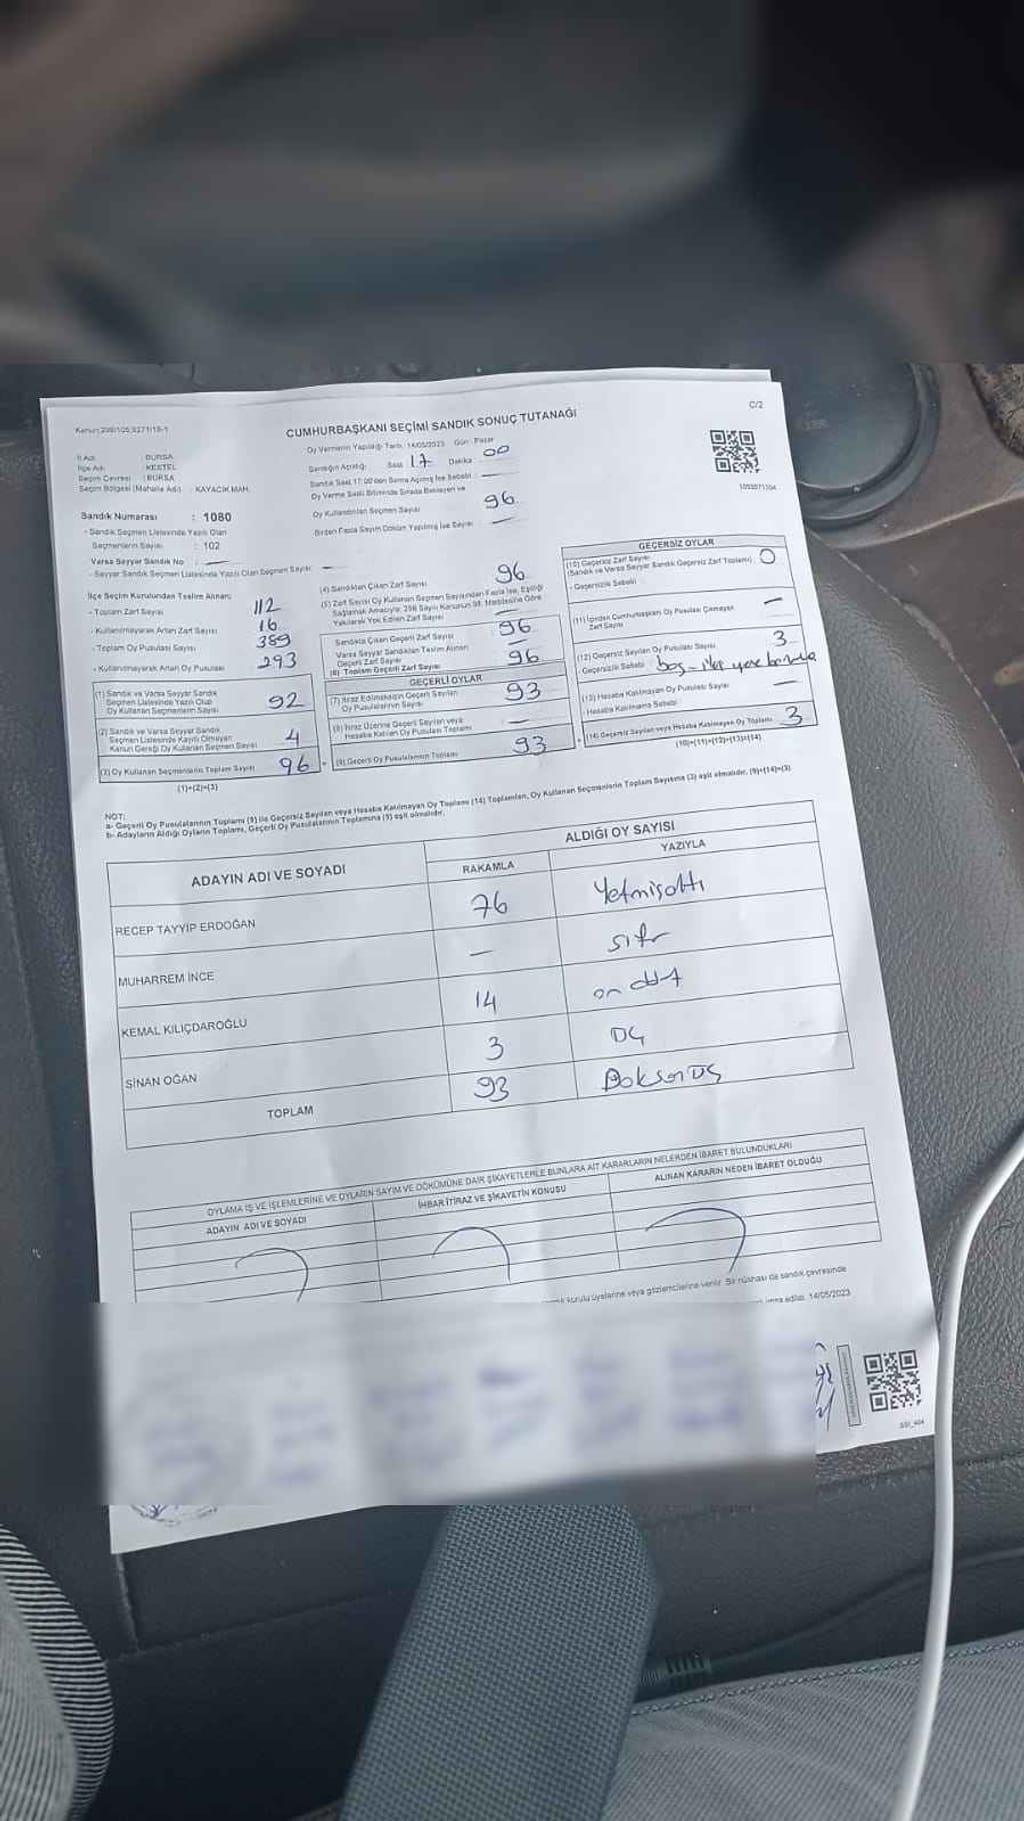 Kanun:298/105,6271/18-1
C/2
CUMHURBAŞKANI SEÇİMİ SANDIK SONUÇ TUTANAĞI
Oy Vermenin Yapıldığı Tarih :14/05/2023 Gün : Pazar
İl Adı : BURSA
İlçe Adı : KESTEL
Seçim Çevresi : BURSA
Seçim Bölgesi (Mahalle Adı) : KAYACIK MAH.
Sandığın Açıldığı Saat 17 Dakika 00
Sandık Saat 17:00'den Sonra Açılmış İse Sebebi : —
Oy Verme Saati Bitiminde Sırada Bekleyen ve
Oy Kullandırılan Seçmen Sayısı 96
Birden Fazla Sayım Döküm Yapılmış İse Sayısı —
Sandık Numarası : 1080
- Sandık Seçmen Listesinde Yazılı Olan
Seçmenlerin Sayısı : 102
Varsa Seyyar Sandık No : —
- Seyyar Sandık Seçmen Listesinde Yazılı Olan Seçmen Sayısı: —
İlçe Seçim Kurulundan Teslim Alınan;
- Toplam Zarf Sayısı 112
- Kullanılmayarak Artan Zarf Sayısı 16
- Toplam Oy Pusulası Sayısı 389
- Kullanılmayarak Artan Oy Pusulası 293
(1) Sandık ve Varsa Seyyar Sandık
Seçmen Listesinde Yazılı Olup
Oy Kullanan Seçmenlerin Sayısı 92
(2) Sandık ve Varsa Seyyar Sandık
Seçmen Listesinde Kayıtlı Olmayan
Kanun Gereği Oy Kullanan Seçmen Sayısı 4
(3) Oy Kullanan Seçmenlerin Toplam Sayısı 96
(1)+(2)=(3)
(4) Sandıktan Çıkan Zarf Sayısı 96
(5) Zarf Sayısı Oy Kullanan Seçmen Sayısından Fazla İse, Eşitliği
Sağlamak Amacıyla; 298 Sayılı Kanunun 98. Maddesine Göre
Yakılarak Yok Edilen Zarf Sayısı —
Sandıkta Çıkan Geçerli Zarf Sayısı 96
Varsa Seyyar Sandıktan Teslim Alınan
Geçerli Zarf Sayısı
(6) Toplam Geçerli Zarf Sayısı 96
GEÇERLİ OYLAR
(7) İtiraz Edilmeksizin Geçerli Sayılan
Oy Pusulalarının Sayısı 93
(8) İtiraz Üzerine Geçerli Sayılan veya
Hesaba Katılan Oy Pusulası Toplamı —
(9) Geçerli Oy Pusulalarının Toplamı 93
GEÇERSİZ OYLAR
(10) Geçersiz Zarf Sayısı
(Sandık ve Varsa Seyyar Sandık Geçersiz Zarf Toplamı) 0
- Geçersizlik Sebebi
(11) İçinden Cumhurbaşkanı Oy Pusulası Çıkmayan
Zarf Sayısı —
(12) Geçersiz Sayılan Oy Pusulası Sayısı 3
- Geçersizlik Sebebi boş
(13) Hesaba Katılmayan Oy Pusulası Sayısı —
- Hesaba Katılmama Sebebi
(14) Geçersiz Sayılan veya Hesaba Katılmayan Oy Toplamı 3
(10)+(11)+(12)+(13)=(14)
NOT:
a- Geçerli Oy Pusulalarının Toplamı (9) ile Geçersiz Sayılan veya Hesaba Katılmayan Oy Toplamı (14) Toplamları, Oy Kullanan Seçmenlerin Toplam Sayısına (3) eşit olmalıdır. (9)+(14)=(3)
b- Adayların Aldığı Oyların Toplamı, Geçerli Oy Pusulalarının Toplamına (9) eşit olmalıdır.
ADAYIN ADI VE SOYADI
ALDIĞI OY SAYISI
RAKAMLA YAZIYLA
RECEP TAYYİP ERDOĞAN 76 Yetmişaltı
MUHARREM İNCE — sıfır
KEMAL KILIÇDAROĞLU 14 on dört
SİNAN OĞAN 3 üç
TOPLAM 93 Doksanüç
OYLAMA İŞ VE İŞLEMLERİNE VE OYLARIN SAYIM VE DÖKÜMÜNE DAİR ŞİKAYETLERLE BUNLARA AİT KARARLARIN NELERDEN İBARET BULUNDUKLARI
ADAYIN ADI VE SOYADI İHBAR İTİRAZ VE ŞİKAYETİN KONUSU ALINAN KARARIN NEDEN İBARET OLDUĞU
kurulu üyelerine veya gözlemcilerine verilir. Bir nüshası da sandık çevresinde
imza edildi. 14/05/2023